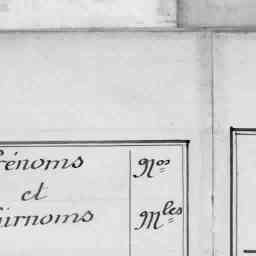 rénoms
et
ürnoms
Nos
Mles